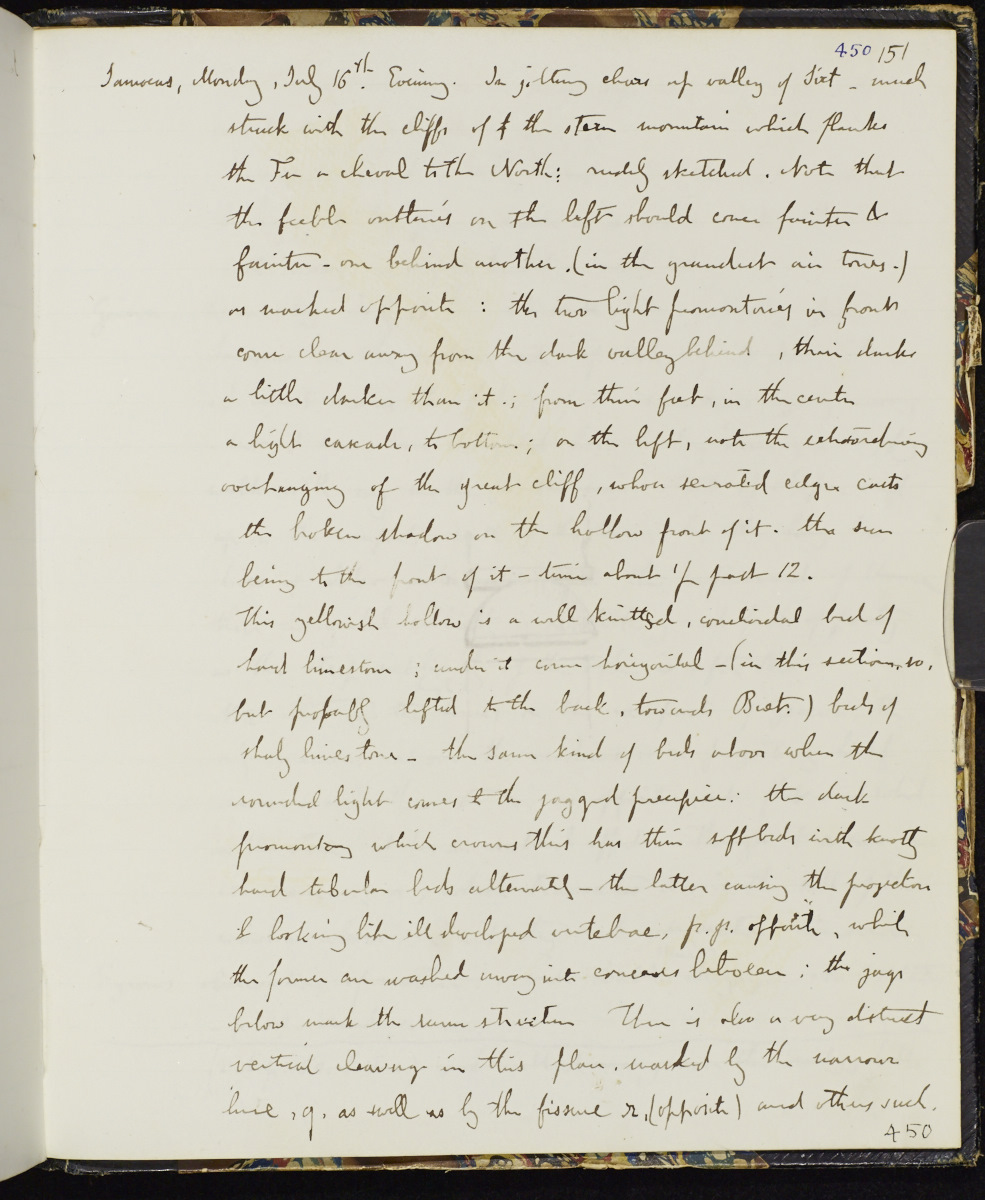 450 151
Samoens, Monday, July 16th. Evening. In jolting chars up valley of Sixt - much
struck with the cliffs of the stern mountain which flanks
the Fer a cheval to the North: rudely sketched. Note that
the feeble outlines on the left should come fainter &
fainter - one behind another. (in the grandest air tones.)
as marked opposite : the two light promontories in front
come clear away from the dark valley behind, their darks
a little darker than it.; from their feet, in the centre
a light cascade, to bottom.; on the left, note the extraordinary
overhanging of the great cliff, whose serrated edge casts
the broken shadow on the hollow front of it. the sun
being to the front of it - time about 1/2 past 12.
This yellowish hollow is a well knitted, conchoidal bed of
hard limestone ; under it come horizontal - (in this section, so,
but probably lifted to the back, towards Buet.) beds of
shaly limestone - the same kind of beds above when the
rounded light comes to the jagged precipice: the dark
promontory which crowns this has thin soft beds with knotty
hard tabular beds alternately - the latter causing the projection
& looking like ill developed vertebrae, p. p. opposite, while
the former are washed away into concaves between ; the jags
below mark the same structure There is also a very distinct
vertical cleavage in this place. marked by the narrow
line, q. as well as by the fissure r, (opposite) and others such.
450